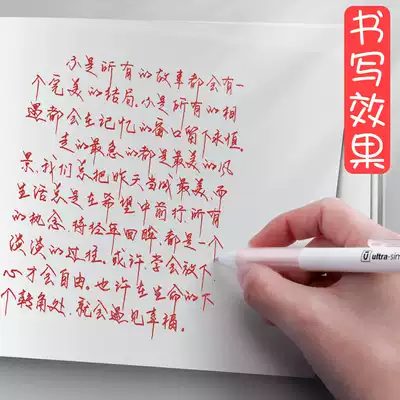 不是所有的故事都会有一
个完美的结局.不是所有的相
遇都会在记忆的窗口留下永恒。
走的最急的都是最美的风
景,我们总把昨天当成最美,而
生活总是在希望中前行,所有
的执念,待经年回眸,都是一个
淡淡的过程。或许,学会放下,
心才会自由。也许在生命的下
个转角处,就会遇见幸福。
书写效果
ultra-sim